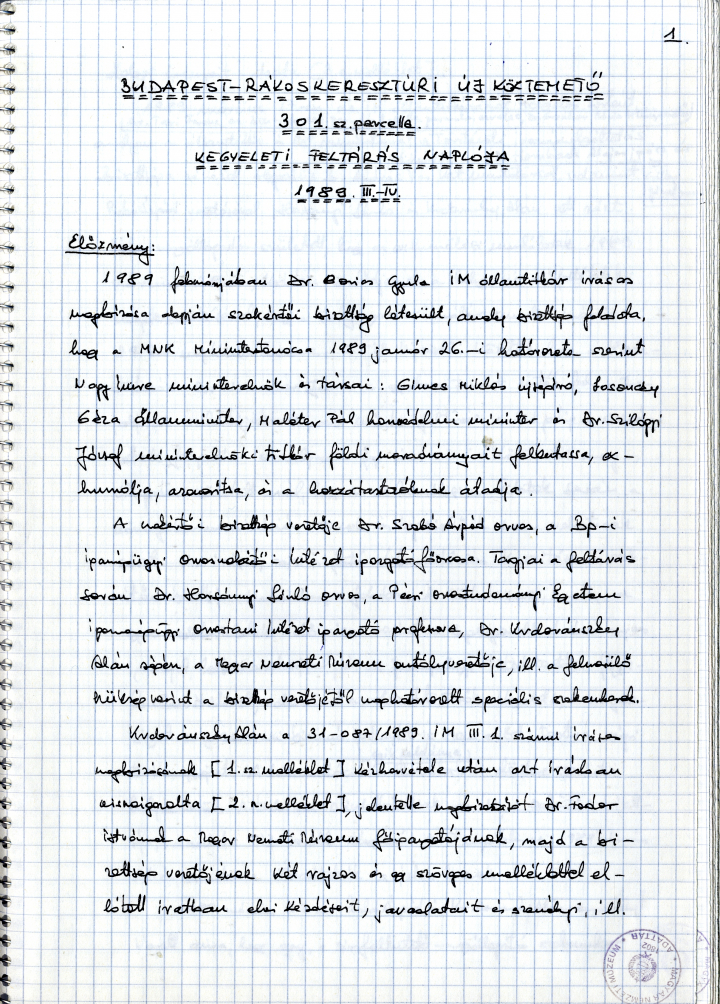 1.
BUDAPEST–RÁKOSKERESZTÚRI ÚJ KÖZTEMETŐ
301. sz. parcella.
KEGYELETI FELTÁRÁS NAPLÓJA
1989. III.–IV.
Előzmény:
1989 Dr. Borics Gyula IM államtitkár írásos
megbízása alapján szakértői bizottság létesült, amely bizottság feladata,
hogy a MNK Minisztertanácsa 1989 január 26.–i határozata szerint
Nagy Imre miniszterelnök és társai: Gimes Miklós újságíró, Losonczy
Géza államminiszter, Maléter Pál honvédelmi miniszter és Dr. Szilágyi
József miniszterelnöki titkár földi maradványait felkutassa, ex-
humálja, azonosítsa, és a hozzátartozóknak átadja.
A szakértői bizottság vezetője Dr. Szabó Árpád orvos, a Bp–i
igazságügyi orvosszakértői Intézet igazgató főorvosa. Tagjai a feltárás
során Dr. Harsányi László orvos, a Pécsi orvostudományi Egyetem
igazságügyi orvostani Intézet igazgató professzora, Dr. K. Zoffmann
Alán régész, a Magyar Nemzeti Múzeum osztályvezetője, ill. a felmerülő
szükség szerint a bizottság vezetőjétől meghatározott speciális szakemberek.
Alán a 31–087/1989. IM III. 1. számú írásos
megbízásának [1. sz. melléklet] kézhezvétele után azt írásban
visszaigazolta [2. sz. melléklet], jelentette megbízatását Dr. Fodor
Istvánnak a Magyar Nemzeti Múzeum főigazgatójának, majd a bi-
zottság vezetőjének két rajzos és egy szöveges melléklettel el-
látott iratban elvi kérdéseit, javaslatait és személyi, ill.
MAGYAR NEMZETI MÚZEUM ADATTÁR 1802